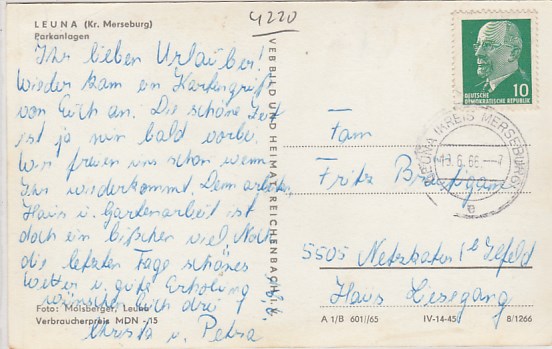 4220
LEUNA (Kr. Merseburg)
Parkanlagen
Ihr lieben Urlauber!
Wieder kam ein Kartengruß
von Euch an. Die schöne Zeit
ist ja nun bald vorbei.
Wir freuen uns schon wenn
Ihr wiederkommt. Denn arbeiten
Haus u. Gartenarbeit ist
doch ein bißchen viel. Noch
die letzten Tage schönes
Wetter u. gute Erholung
wünschen Euch drei
Christa u. Petra
Foto: Molsberger, Leuna
Verbraucherpreis MDN -,15
VEB BILD UND HEIMAT REICHENBACH I. V.
10
DEUTSCHE
DEMOKRATISCHE REPUBLIK
LEUNA (KREIS MERSEBURG)
6.66
e
Fam
Fritz
5505 Netzkater üb Ilfeld
Haus Liesegang
A 1/B 601//65 IV-14-45 8/1266